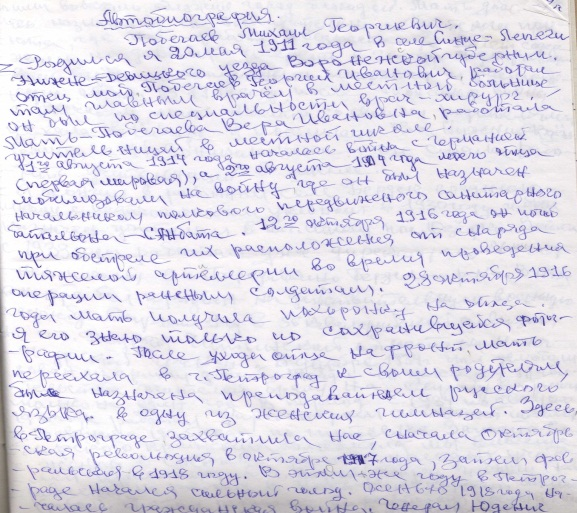 Автобиография.
Побегаев Михаил Георгиевич.
Родился я 20 мая 1911 года в селе Синие-Лепеги
Нижне-Девицкого уезда Воронежской губернии.
отец мой, Побегаев Георгий Иванович, работал
там главным врачём в местной больнице
он был по специальности врач-хирург,
Мать-Побегаева Вера Ивановна, работала
учительницей в местной школе.
августа 1914 года началась война с Германией
(первая мировая), а августа 1914 года моего отца
мобилизовали на войну где он был назначен
начальником полкового передвижного санитарного
батальона-Санбата. 12го октября 1916 года он погиб
при обстреле их расположения от снаряда
тяжелой артиллерии во время проведения
операции раненым солдатам. 28 октября 1916
года мать получила похоронку на отца.
Я его знаю только по сохранившейся фото-
-графии. После ухода отца на фронт, мать
переехала в г. Петроград к своим родителям,
была назначена преподавателем русского
языка в одну из женских гимназий. Здесь,
в Петрограде захватила нас, сначала Октябрь-
-ская революция в октябре 1917 года, затем фев-
-ральская в 1918 году. В этом же году в Петрог-
-раде начался сильный голод. Осенью 1918 года на-
-чалась гражданская война. генерал Юденич